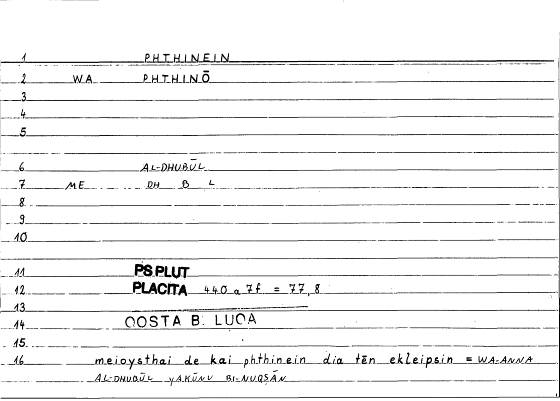 1 PHTHINEIN
2 WA PHTHINŌ
3
4
5
6 AL-DHUBŪL
7 ME DH B L
8
9
10
11 PS PLUT
12 PLACITA 440 a 7f = 77,8
13
14 QOSTA B. LUCA
15
16 meioysthai de kai phthinein dia tēn ekleipsin = WA-ANNA
AL-DHUBŪL YAKŪNU BI-NUQṢĀN